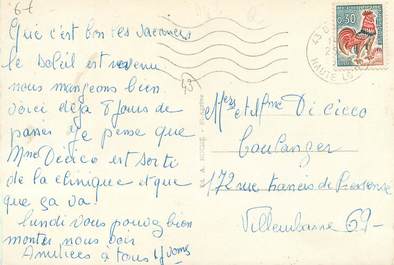 6-t
Que c'est bon les vacances
le soleil est revenu
nous mangeons bien
voici déjà 8 jours de
passés je pense que
Mme Dicicco est sortie
de la clinique et que
que ça va!
lundi vous pouvez bien
monter nous voir
Amitiés à tous Yvonne
43
0,30
43
HAUTE LOIRE
Mers et Mme Dicicco
Boulanger
172 rue Francis de Pressensé
Villeurbanne 69-